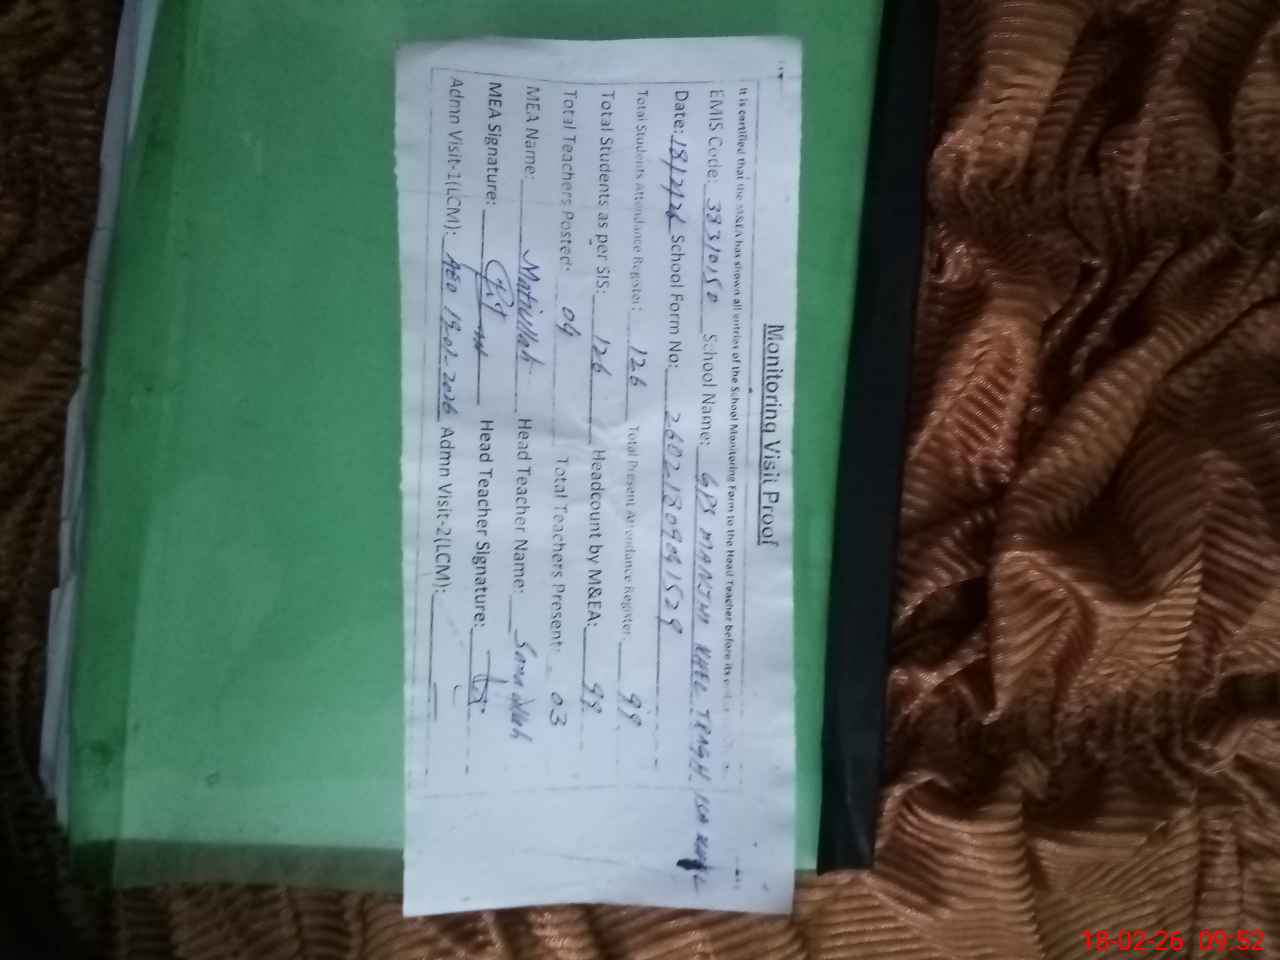 Monitoring Visit Proof
It is certified that the M&EA has shown all entries of the School Monitoring Form to the Head Teacher before its
EMIS Code: 38310150 School Name: GPS MANJHI KHEL TRAGH
Date: 18/2/26 School Form No: 260218090941529
Total Students Attendance Register: 126 Total Present Attendance Register: 99
Total Students as per SIS: 126 Headcount by M&EA: 99
Total Teachers Posted: 04 Total Teachers Present: 03
MEA Name: Matiullah Head Teacher Name: Sana Ullah
MEA Signature: Head Teacher Signature:
Admn Visit-1(LCM): AEO 19.01.2026 Admn Visit-2(LCM):
18-02-26 09:52